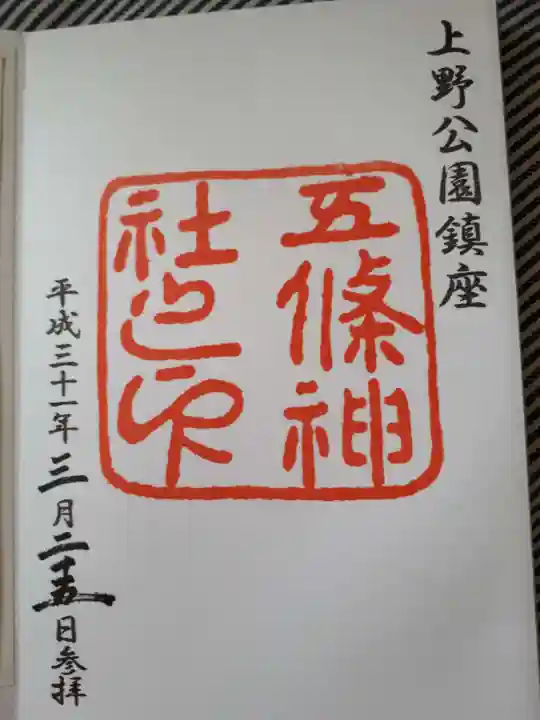 上野公園鎮座
五條神
社之印
平成三十一年三月二十五日参拝